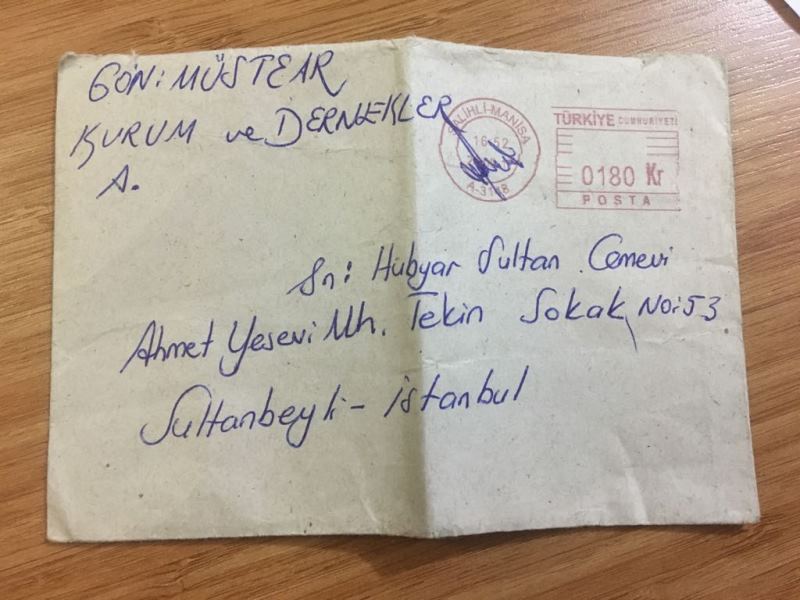 GÖN: MÜSTEAR
KURUM ve DERNEKLER
A.
SALİHLİ-MANİSA
16:52
TÜRKİYE CUMHURİYETİ
0180 Kr
POSTA
Sn: Hübyar Sultan Cemevi
Ahmet Yesevi Mh. Tekin Sokak No:53
Sultanbeyli - İstanbul